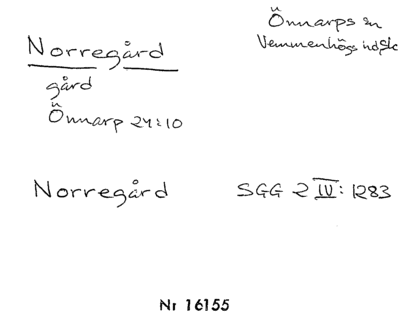 Önnarps sn
Vemmenhögs hd Sk
Norregård
gård
Önnarp 24:10
Norregård SGG 2 IV: 1283
Nr 16155